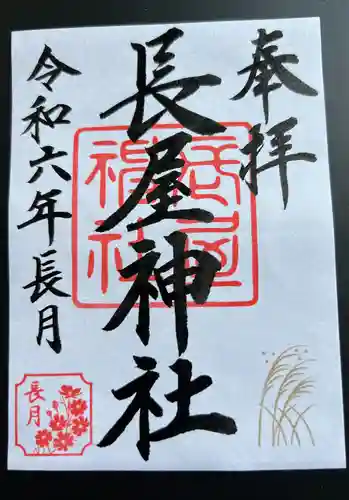 奉拝
長屋神社
長屋神社
令和六年長月
長月